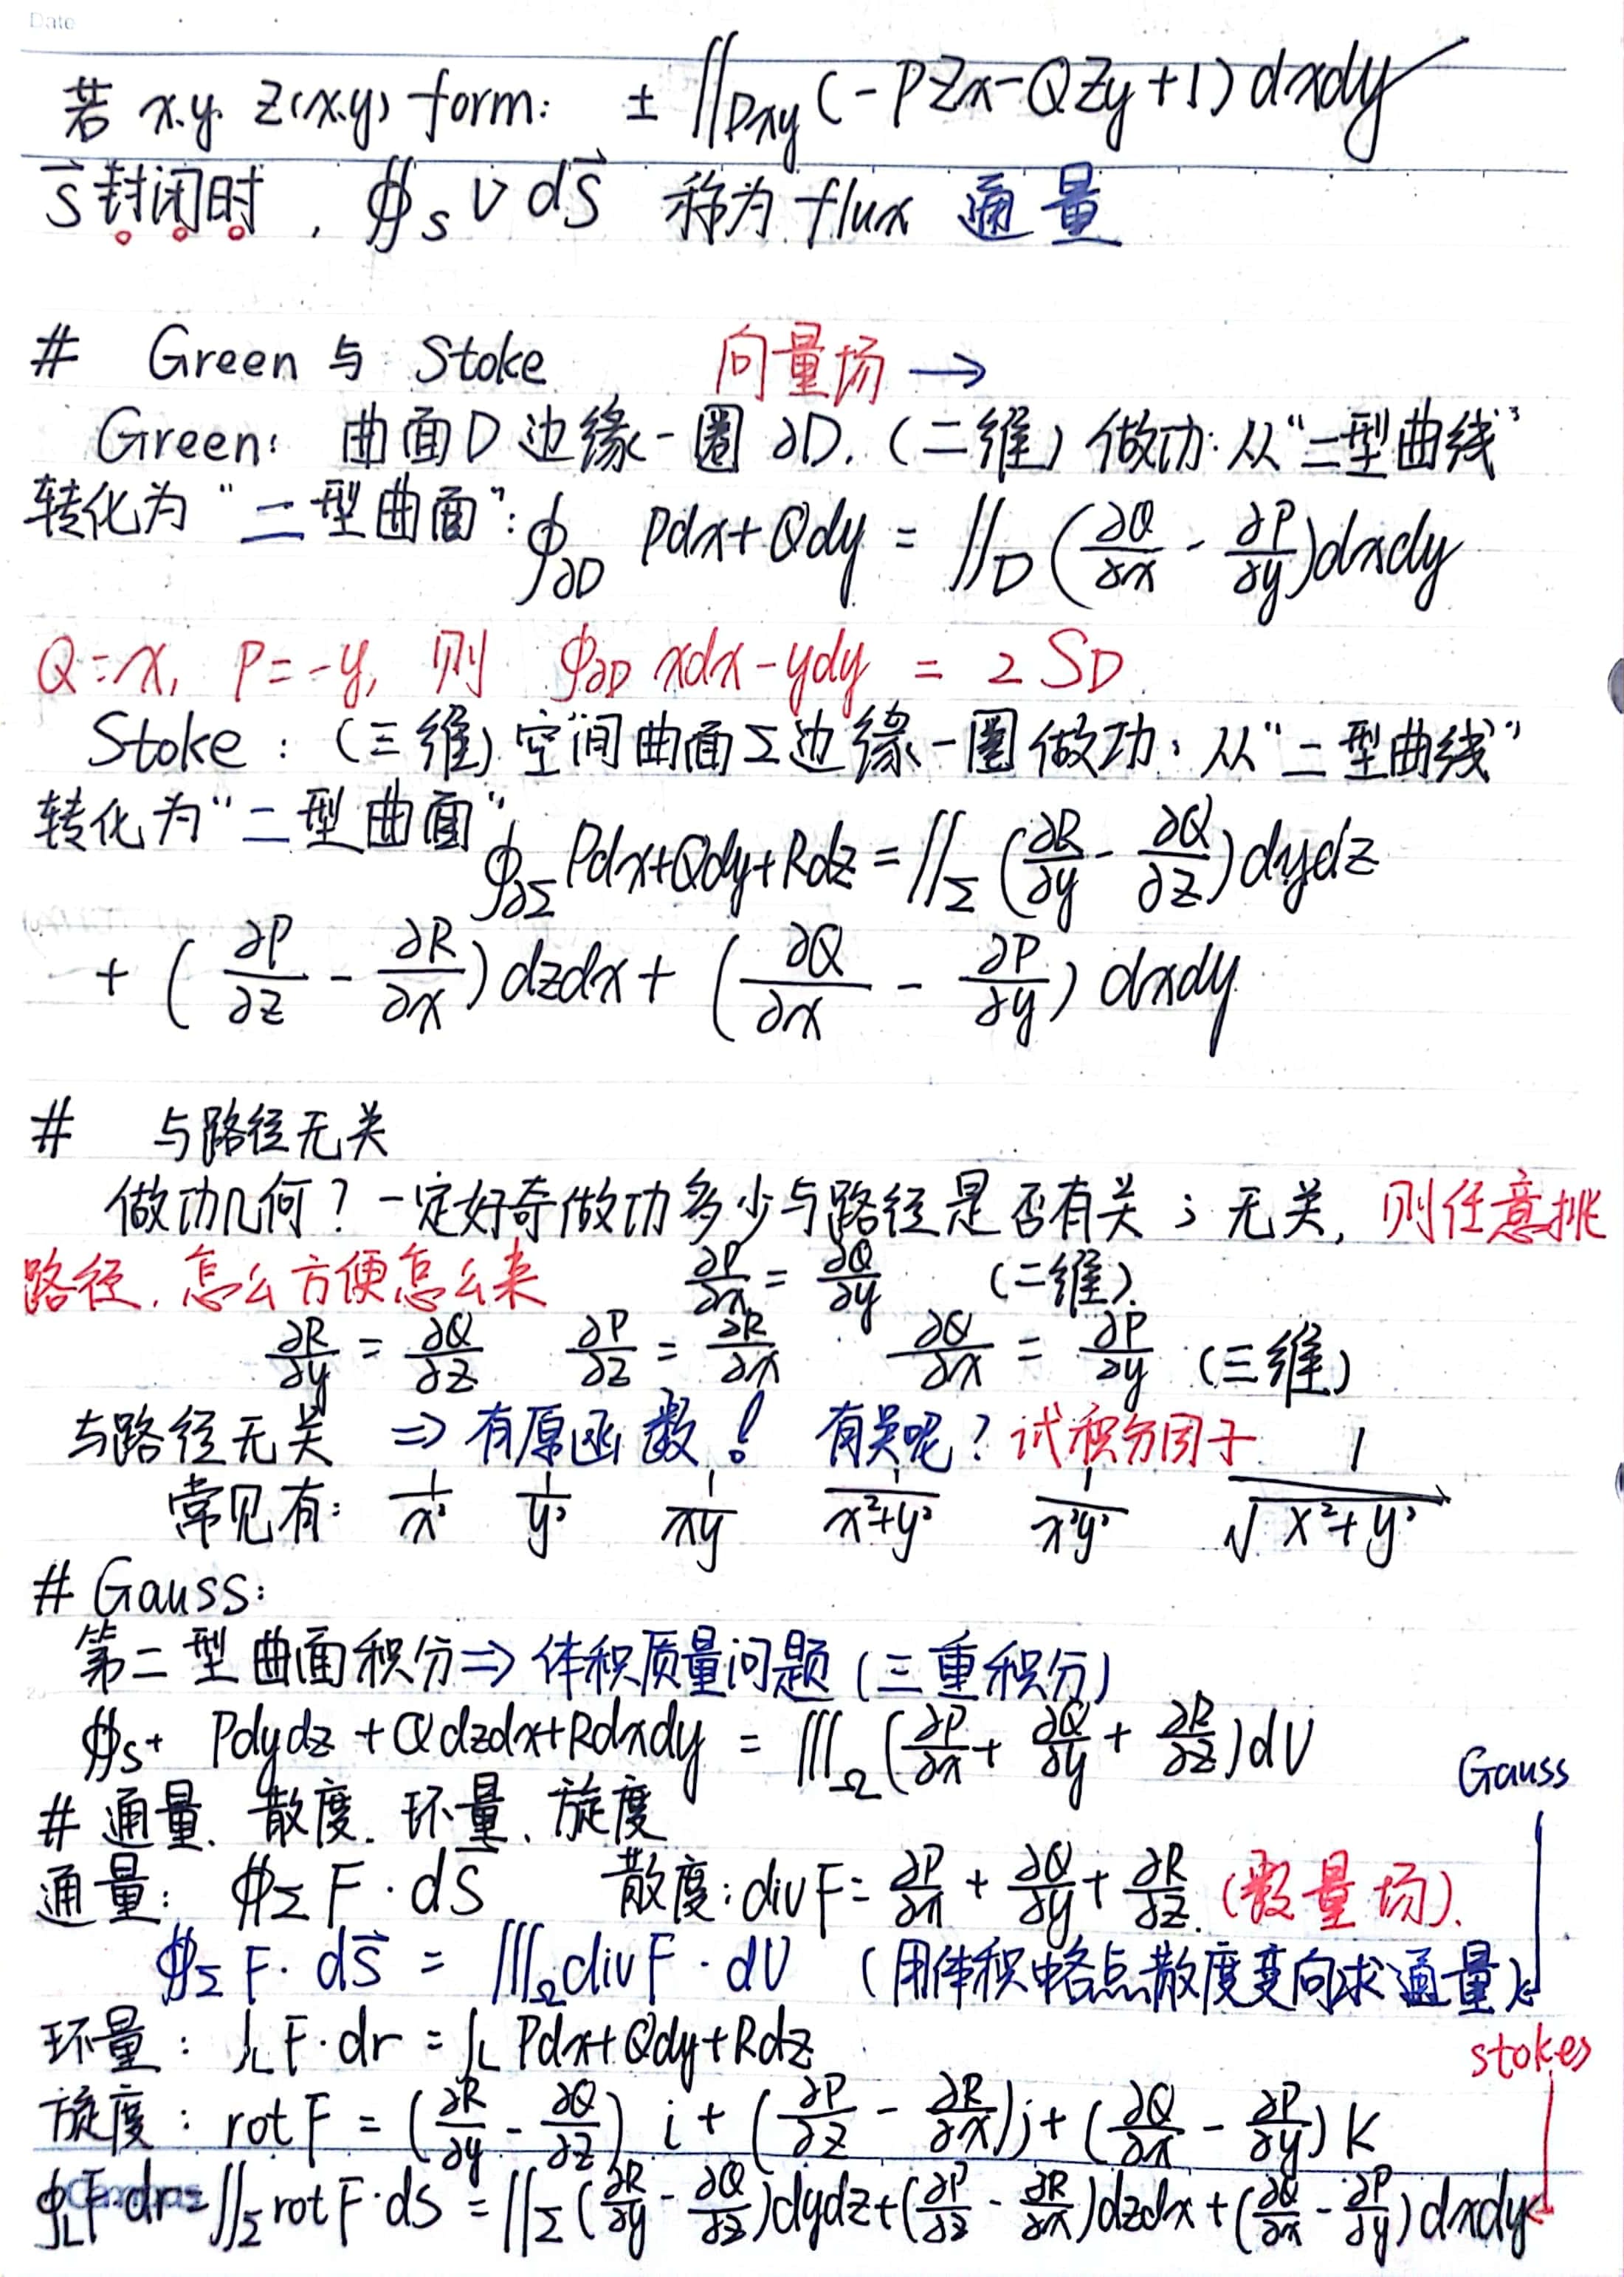 Date
若 x.y. z(x.y) form: ± ∬Dxy (-PZx-QZy+1) dxdy
S⃗封闭时, ∯s v dS⃗ 称为 flux 通量
# Green 与 Stoke 向量场 →
Green: 曲面D边缘一圈 ∂D. (二维) 做功: 从“二型曲线”
转化为“二型曲面”: ∮∂D Pdx+Qdy = ∬D (∂Q/∂x - ∂P/∂y)dxdy
Q=x, P=-y, 则 ∮∂D xdx-ydy = 2SD.
Stoke: (三维) 空间曲面Σ边缘一圈做功: 从“二型曲线”
转化为“二型曲面” ∮∂Σ Pdx+Qdy+Rdz = ∬Σ (∂R/∂y - ∂Q/∂z)dydz
+ (∂P/∂z - ∂R/∂x) dzdx + (∂Q/∂x - ∂P/∂y) dxdy
# 与路径无关
做功几何? 一定好奇做功多少与路径是否有关; 无关, 则任意挑
路径, 怎么方便怎么来 ∂P/∂x = ∂Q/∂y (二维)
∂R/∂y = ∂Q/∂z ∂P/∂z = ∂R/∂x ∂Q/∂x = ∂P/∂y (三维)
与路径无关 ⇒ 有原函数! 有关呢? 试积分因子
常见有: 1/x² 1/y² 1/xy 1/x²+y² 1/x²y² 1/√x²+y²
# Gauss:
第二型曲面积分⇒体积质量问题 (三重积分)
∯S+ Pdydz + Qdzdx+Rdxdy = ∭Ω (∂P/∂x + ∂Q/∂y + ∂R/∂z)dV
Gauss
# 通量、散度、环量、旋度
通量: ∯Σ F·dS 散度: divF = ∂P/∂x + ∂Q/∂y + ∂R/∂z. (数量场).
∯Σ F·dS⃗ = ∭Ω divF·dV (用体积中各点散度变向求通量)
环量: ∫L F·dr = ∫L Pdx+Qdy+Rdz
stokes
旋度: rotF = (∂R/∂y - ∂Q/∂z) i + (∂P/∂z - ∂R/∂x)j + (∂Q/∂x - ∂P/∂y) k
∮L F·dr = ∬Σ rotF·dS = ∬Σ (∂R/∂y - ∂Q/∂z)dydz+(∂P/∂z - ∂R/∂x)dzdx+(∂Q/∂x - ∂P/∂y)dxdy